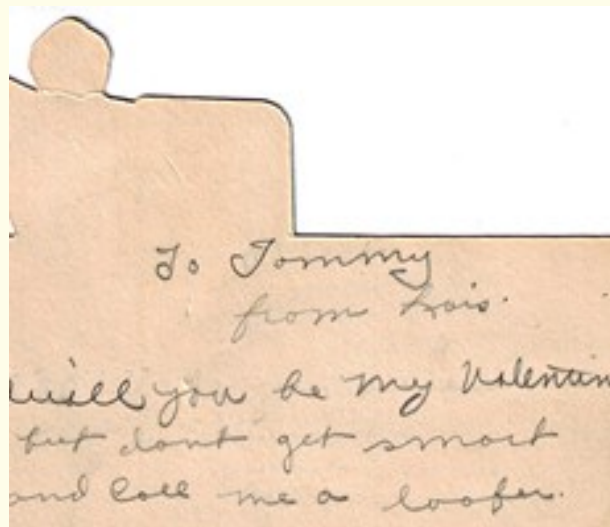 To Tommy
from Lois.
Will you be my Valentin
but dont get smart
and call me a loafer.